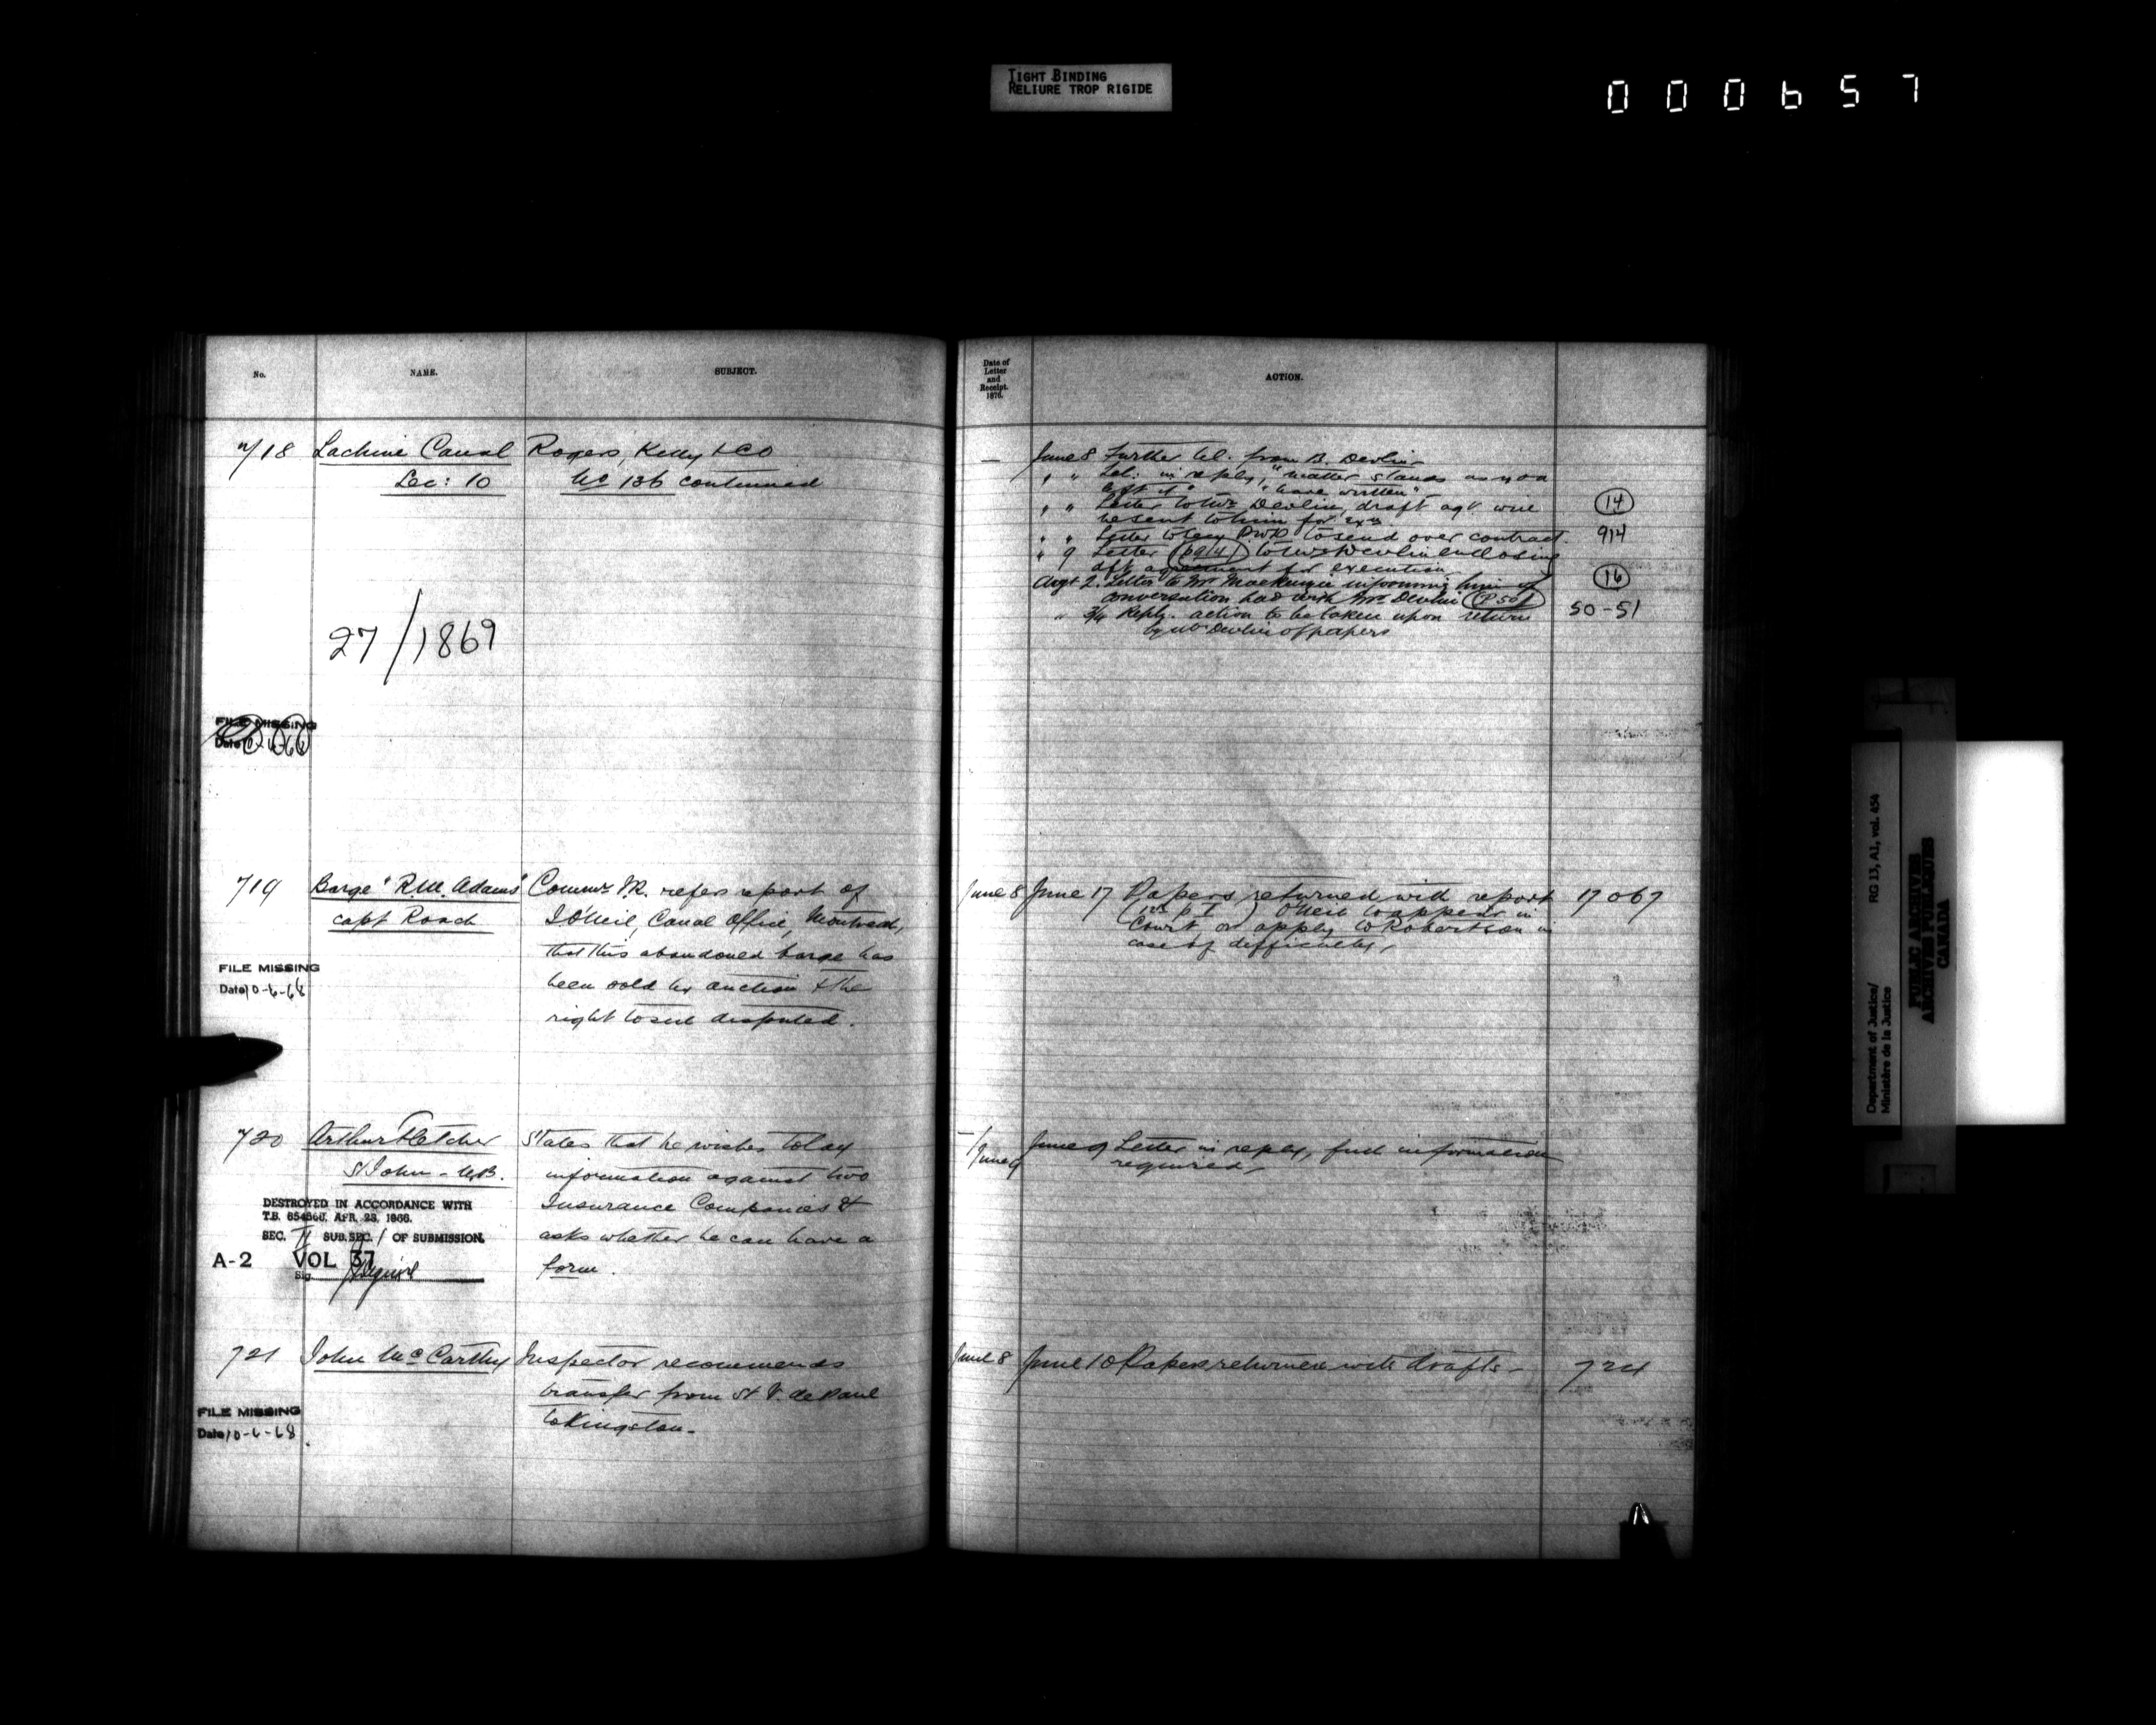 TIGHT BINDING
RELIURE TROP RIGIDE
000657
No. NAME. SUBJECT.
718 Lachine Canal Rogers, Kelly & Co
Sec: 10 No 136 continued
27/1869
FILE MISSING
Date
719 Barge "R.W. Adams" Commr I.R. refers report of
capt Roach J O'Neil, Canal Office, Montreal,
that this abandoned barge has
FILE MISSING
Date 10-6-68
been sold by auction & the
right to sell disputed.
720 Arthur Fletcher States that he wishes to lay
St John - N.B. information against two
DESTROYED IN ACCORDANCE WITH
T.B. APR. 28, 1966.
SEC. II SUB.SEC. 1 OF SUBMISSION.
A-2 VOL 37
Sig.
Insurance Companies &
asks whether he can have a
form.
721 John McCarthy Inspector recommends
transfer from St V. de Paul
to Kingston.
FILE MISSING
Date 10-6-68
Date of
Letter
and
Receipt.
1876.
ACTION.
— June 8 Further tel. from B. Devlin
" " Tel: in reply, "matter stands as you
left it" - "have written"
" " Letter to Mr Devlin, draft agt will 14
be sent to him for
" " Letter to Secy PWD to send over contract. 914
" 9 Letter to Mr Devlin enclosing
dft agreement for execution 16
Augt 2. Letter to Mr Mackenzie informing him of
conversation had with Mr Devlin (P 50) 50-51
" 3/4 Reply. action to be taken upon return
by Mr Devlin of papers
June 8 June 17 Papers returned with report 17067
O'Neil to appear in
Court or apply to Robertson in
case of difficulty,
— / June 9 June 9 Letter in reply, full information
required,
June 8 June 10 Papers returned with drafts - 724
Department of Justice/
Ministère de la Justice
RG 13, A1, vol. 454
PUBLIC ARCHIVES
ARCHIVES PUBLIQUES
CANADA